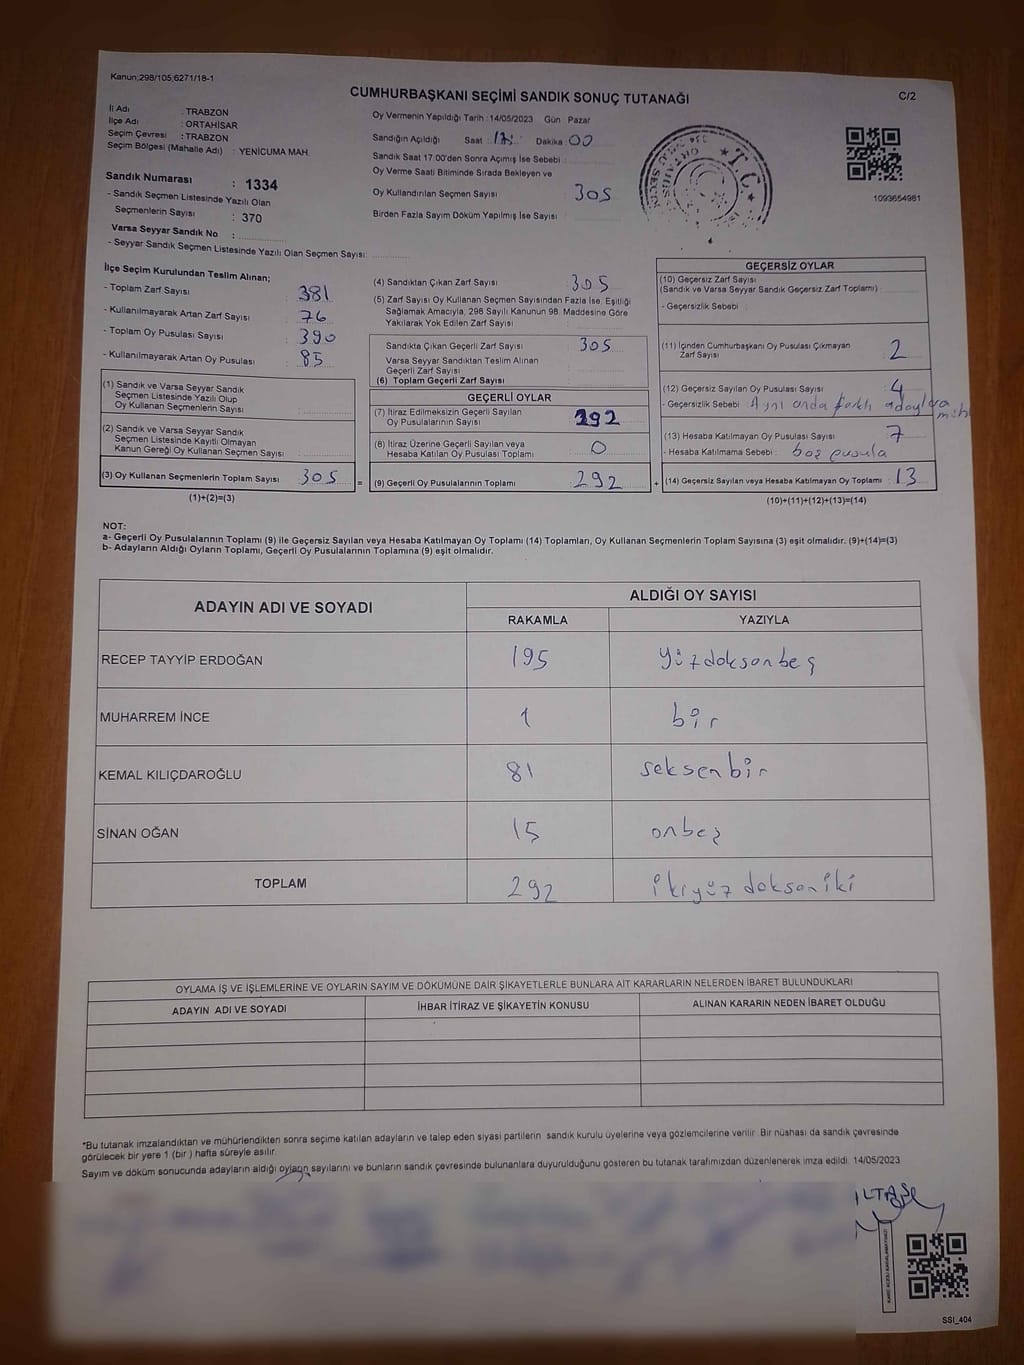 Kanun;298/105;6271/18-1
CUMHURBAŞKANI SEÇİMİ SANDIK SONUÇ TUTANAĞI
C/2
İl Adı : TRABZON
İlçe Adı : ORTAHİSAR
Seçim Çevresi : TRABZON
Seçim Bölgesi (Mahalle Adı) : YENİCUMA MAH.
Sandık Numarası : 1334
- Sandık Seçmen Listesinde Yazılı Olan
Seçmenlerin Sayısı : 370
Varsa Seyyar Sandık No :
- Seyyar Sandık Seçmen Listesinde Yazılı Olan Seçmen Sayısı:
Oy Vermenin Yapıldığı Tarih : 14/05/2023 Gün Pazar
Sandığın Açıldığı Saat : Dakika 00
Sandık Saat 17.00'den Sonra Açımış İse Sebebi :
Oy Verme Saati Bitiminde Sırada Bekleyen ve
Oy Kullandırılan Seçmen Sayısı 305
Birden Fazla Sayım Döküm Yapılmış İse Sayısı :
T.C.
1093654981
İlçe Seçim Kurulundan Teslim Alınan;
- Toplam Zarf Sayısı : 381
- Kullanılmayarak Artan Zarf Sayısı : 76
- Toplam Oy Pusulası Sayısı : 390
- Kullanılmayarak Artan Oy Pusulası : 85
(1) Sandık ve Varsa Seyyar Sandık
Seçmen Listesinde Yazılı Olup
Oy Kullanan Seçmenlerin Sayısı :
(2) Sandık ve Varsa Seyyar Sandık
Seçmen Listesinde Kayıtlı Olmayan
Kanun Gereği Oy Kullanan Seçmen Sayısı :
(3) Oy Kullanan Seçmenlerin Toplam Sayısı : 305 =
(1)+(2)=(3)
(4) Sandıktan Çıkan Zarf Sayısı : 305
(5) Zarf Sayısı Oy Kullanan Seçmen Sayısından Fazla İse, Eşitliği
Sağlamak Amacıyla, 298 Sayılı Kanunun 98. Maddesine Göre
Yakılarak Yok Edilen Zarf Sayısı :
Sandıkta Çıkan Geçerli Zarf Sayısı : 305
Varsa Seyyar Sandıktan Teslim Alınan
Geçerli Zarf Sayısı :
(6) Toplam Geçerli Zarf Sayısı :
GEÇERLİ OYLAR
(7) İtiraz Edilmeksizin Geçerli Sayılan
Oy Pusulalarının Sayısı : 292
(8) İtiraz Üzerine Geçerli Sayılan veya
Hesaba Katılan Oy Pusulası Toplamı : 0
(9) Geçerli Oy Pusulalarının Toplamı : 292 +
GEÇERSİZ OYLAR
(10) Geçersiz Zarf Sayısı
(Sandık ve Varsa Seyyar Sandık Geçersiz Zarf Toplamı) :
- Geçersizlik Sebebi :
(11) İçinden Cumhurbaşkanı Oy Pusulası Çıkmayan
Zarf Sayısı : 2
(12) Geçersiz Sayılan Oy Pusulası Sayısı : 4
- Geçersizlik Sebebi : Aynı anda farklı adaylara
(13) Hesaba Katılmayan Oy Pusulası Sayısı : 7
- Hesaba Katılmama Sebebi : boş pusula
(14) Geçersiz Sayılan veya Hesaba Katılmayan Oy Toplamı : 13
(10)+(11)+(12)+(13)=(14)
NOT:
a- Geçerli Oy Pusulalarının Toplamı (9) ile Geçersiz Sayılan veya Hesaba Katılmayan Oy Toplamı (14) Toplamları, Oy Kullanan Seçmenlerin Toplam Sayısına (3) eşit olmalıdır. (9)+(14)=(3)
b- Adayların Aldığı Oyların Toplamı, Geçerli Oy Pusulalarının Toplamına (9) eşit olmalıdır.
ADAYIN ADI VE SOYADI
ALDIĞI OY SAYISI
RAKAMLA YAZIYLA
RECEP TAYYİP ERDOĞAN 195 yüzdoksanbeş
MUHARREM İNCE 1 bir
KEMAL KILIÇDAROĞLU 81 seksenbir
SİNAN OĞAN 15 onbeş
TOPLAM 292 ikiyüzdoksaniki
OYLAMA İŞ VE İŞLEMLERİNE VE OYLARIN SAYIM VE DÖKÜMÜNE DAİR ŞİKAYETLERLE BUNLARA AİT KARARLARIN NELERDEN İBARET BULUNDUKLARI
ADAYIN ADI VE SOYADI İHBAR İTİRAZ VE ŞİKAYETİN KONUSU ALINAN KARARIN NEDEN İBARET OLDUĞU
*Bu tutanak imzalandıktan ve mühürlendikten sonra seçime katılan adayların ve talep eden siyasi partilerin sandık kurulu üyelerine veya gözlemcilerine verilir. Bir nüshası da sandık çevresinde
görülecek bir yere 1 (bir ) hafta süreyle asılır.
Sayım ve döküm sonucunda adayların aldığı oyların sayılarını ve bunların sandık çevresinde bulunanlara duyurulduğunu gösteren bu tutanak tarafımızdan düzenlenerek imza edildi. 14/05/2023
SSI_404